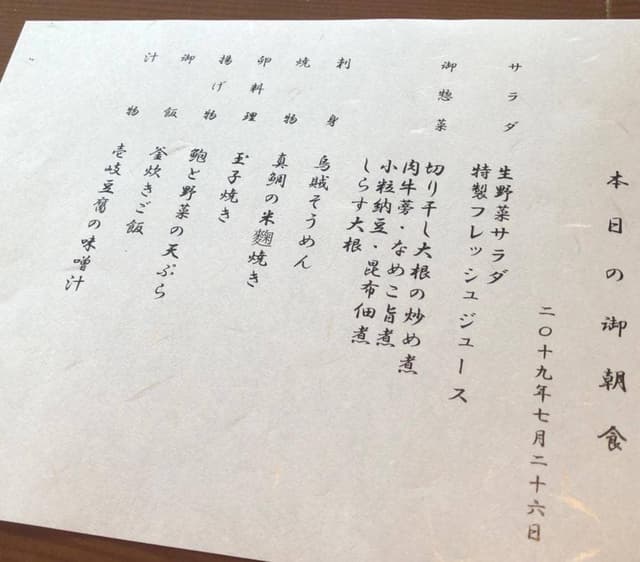 本日の御朝食
二〇十九年七月二十六日
サラダ
生野菜サラダ
特製フレッシュジュース
御惣菜
切り干し大根の炒め煮
肉牛蒡・なめこ旨煮
小粒納豆・昆布佃煮
しらす大根
刺身
烏賊そうめん
焼物
真鯛の米麹焼き
卵料理
玉子焼き
揚げ物
鮑と野菜の天ぷら
御飯
釜炊きご飯
汁物
壱岐豆腐の味噌汁